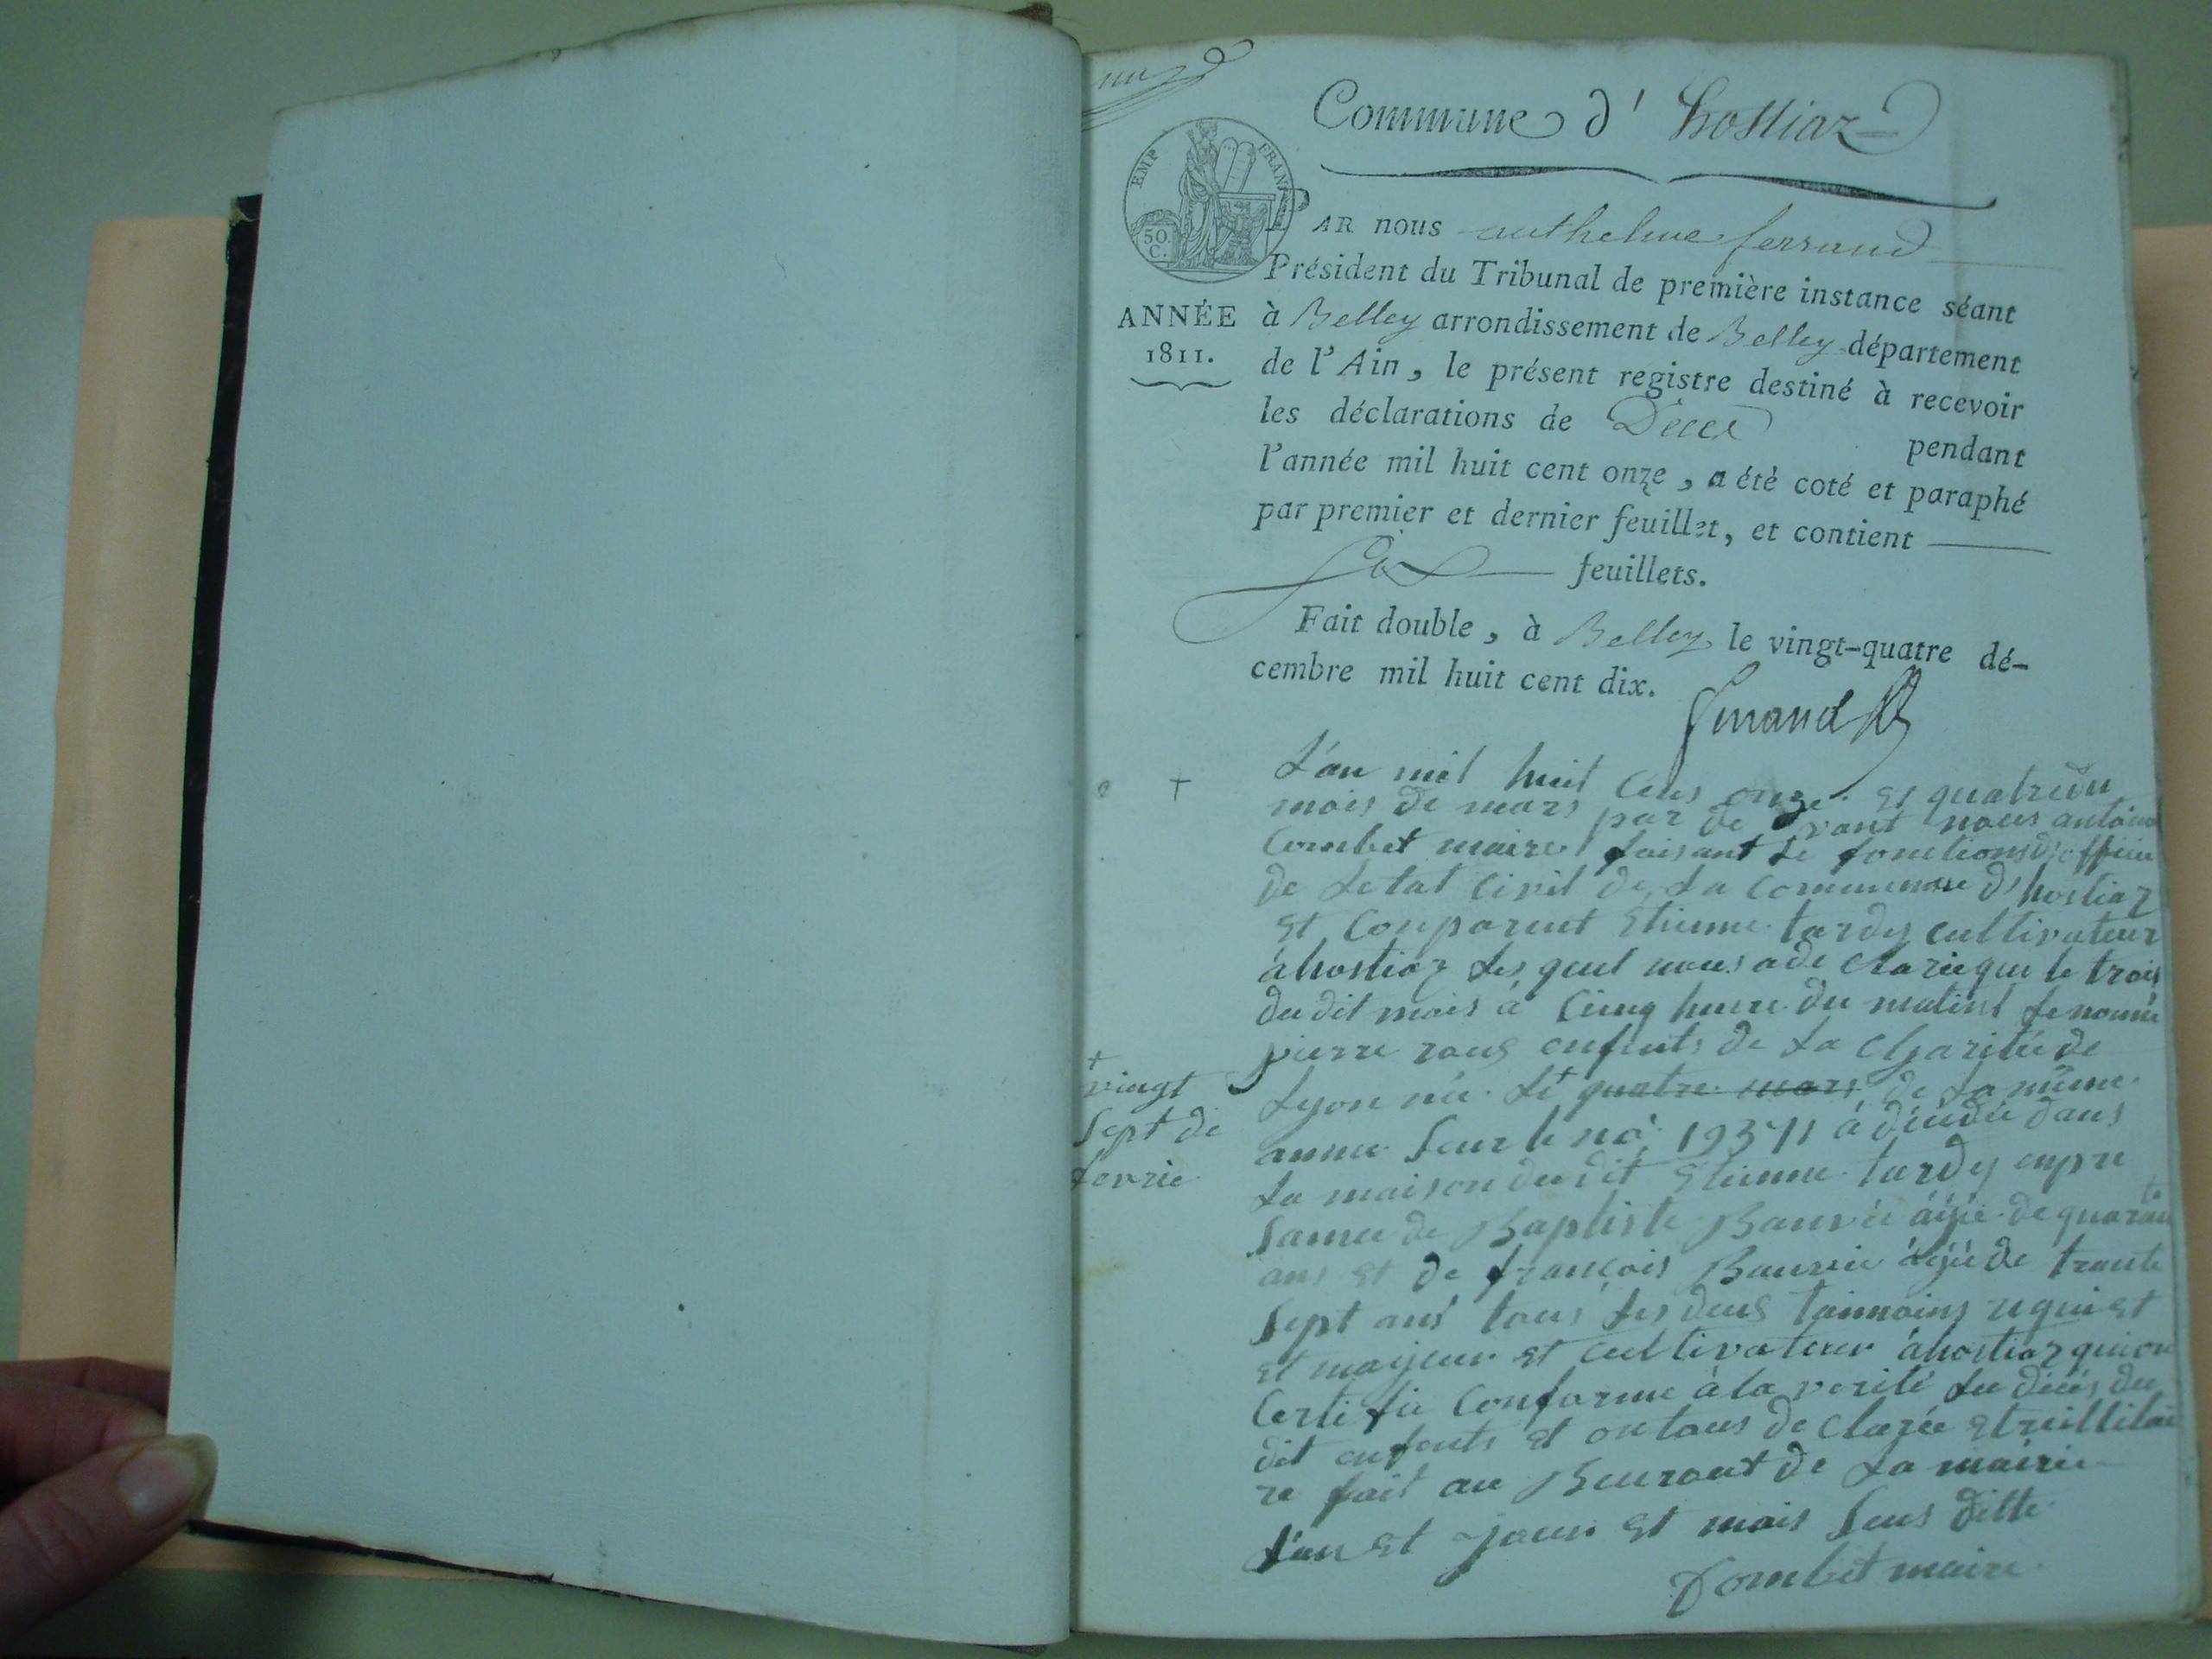 Commune d'hostiaz
EMP FRAN
50.
C.
PAR nous anthelme ferrand
Président du Tribunal de première instance séant
ANNÉE
1811.
à Belley arrondissement de Belley département
de l'Ain, le présent registre destiné à recevoir
les déclarations de Décès pendant
l'année mil huit cent onze, a été coté et paraphé
par premier et dernier feuillet, et contient
Six feuillets.
Fait double, à Belley le vingt-quatre dé-
cembre mil huit cent dix.
ferrand
+
L'an mil huit Cens onze et quatre du
mois de mars par de vant nous antoine
Combet maire faisant Lé fonctions d'officie
de Letat Civil de La Commune d'hostiaz
et Conparut Etienne tardy cultivateur
à hostiaz Les quel nous a de clarée que le trois
du dit mois à Cinq heure du matint Le nomé
pierre rous enfents de La Charitée de
Lyon née Le + quatre mars de La même
année Sour le no 19371 à décédée dans
+
vingt
Sept de
fevrie
La maison du dit Etienne tardy en pre
Sance de Baptiste âgée de quarante
ans et de françois âgée de trante
Sept ans tous Les deus taimoins requi et
et majeur et cultivateur à hostiaz qui on
Certi fié Conforme à la verité du décés du
dit enfents et on tous de clarée
re fait au Bureaut de La mairie
L'an et jour et mois Sus ditte
Combet maire